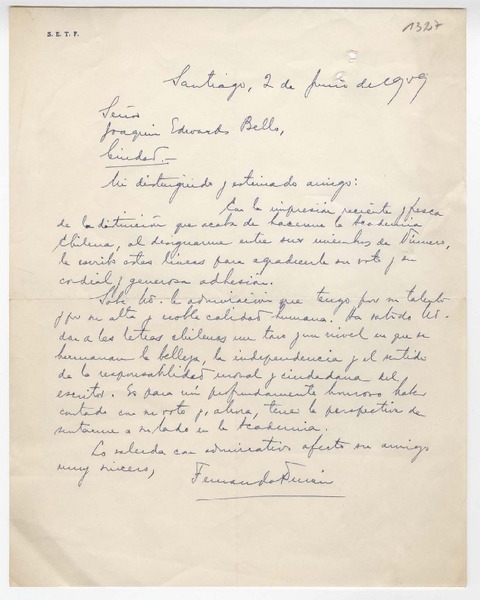 S. E. T. F.
1327
Santiago, 2 de Junio de 1959
Señor
Joaquin Edwards Bello,
Ciudad.-
Mi distinguido y estimado amigo:
Con la impresión reciente y fresca
de la distinción que acaba de hacerme la Academia
Chilena, al designarme entre sus miembros de Número,
le escribo estas líneas para agradecerle su voto y su
cordial y generosa adhesión.
Sabe Ud. la admiración que tengo por su talento
y por su alta y noble calidad humana. Ha sabido Ud.
dar a las letras chilenas un tono y un nivel en que se
hermanan la belleza, la independencia y el sentido
de la responsabilidad moral y ciudadana del
escritor. Es para mí profundamente honroso haber
contado con su voto y, ahora, tener la perspectiva de
sentarme a su lado en la Academia.
Lo saluda con admirativo afecto su amigo
muy sincero,
Fernando Durán